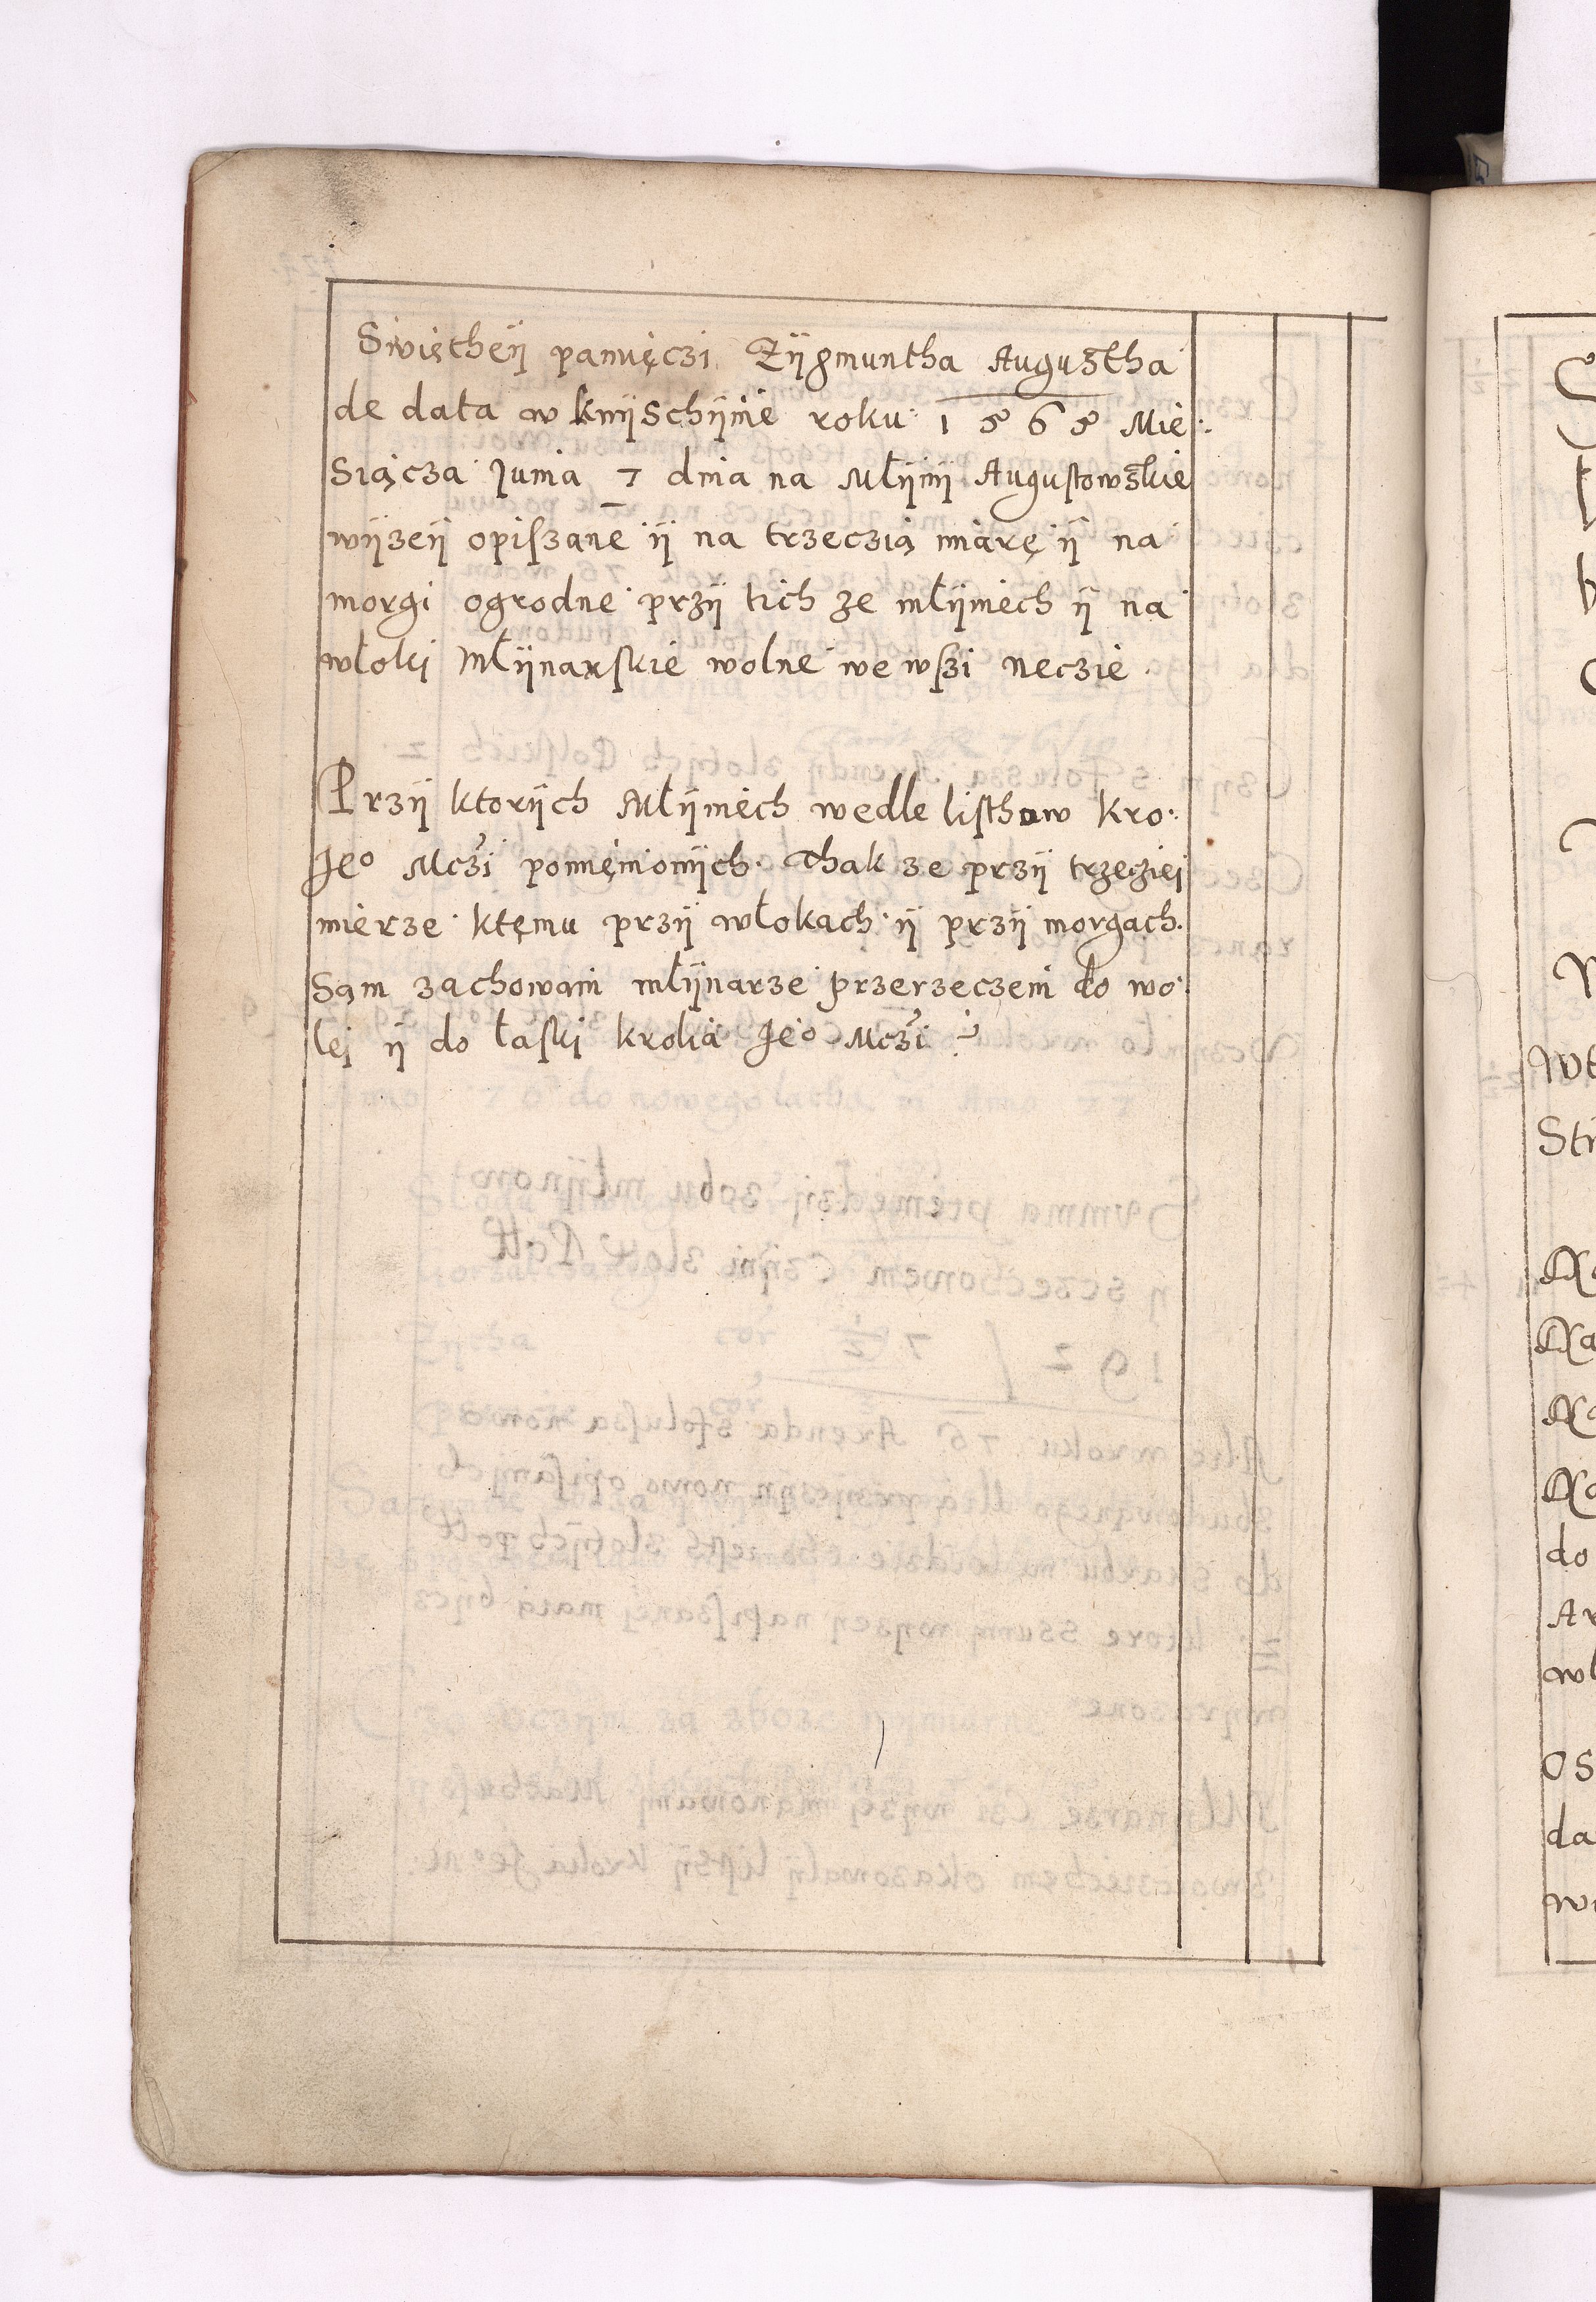 Swiętheÿ pamięczi Zÿgmuntha Augustha
de data w knÿschÿnie roku 1565 Mie:
siącza Junia 7 dnia na Młÿnÿ Augustowskie
wÿzeÿ opiszane ÿ na trzeczią miarę ÿ na
morgi ogrodne przÿ tich ze młÿniech ÿ na
włoki Młÿnarskie wolne we wszi neczie.
Przÿ ktorÿch Młÿniech wedle listhow kro:
Jeo Mczi pomięnionÿch. Thak ze przÿ trzecziej
mierze ktęmu przÿ włokach ÿ przÿ morgach.
Sąm zachowani młÿnarze przerzeczeni do wo:
lej ÿ do łaski krolia Jeo Mczi